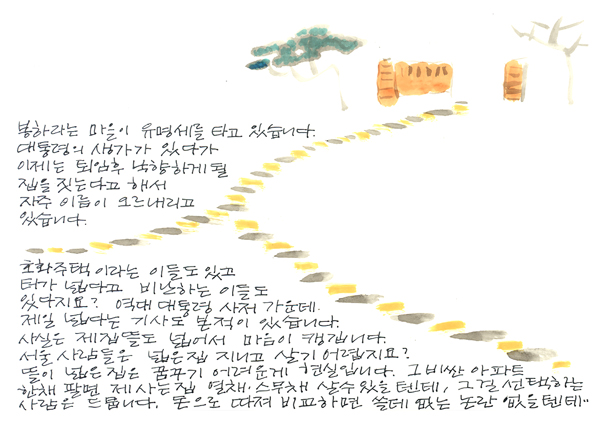 봉하라는 마을이 유명세를 타고 있습니다.
대통령의 생가가 있다가
이제는 퇴임후 낙향하게 될
집을 짓는다고 해서
자주 이름이 오르내리고
있습니다.
호화주택이라는 이들도 있고
터가 넓다고 비난하는 이들도
있다지요? 역대 대통령 사저 가운데
제일 넓다는 기사도 본적이 있습니다.
사실은 제집 뜰도 넓어서 마음이 캥깁니다.
서울 사람들은 넓은집 지니고 살기 어렵지요?
뜰이 넓은 집은 꿈꾸기 어려운게 현실입니다. 그 비싼 아파트
한채 팔면 제 사는 집 열채·스무채 살수 있을텐데, 그걸 선택하는
사람은 드뭅니다. 돈으로 따져 비교하면 쓸데 없는 논란 없을텐데··